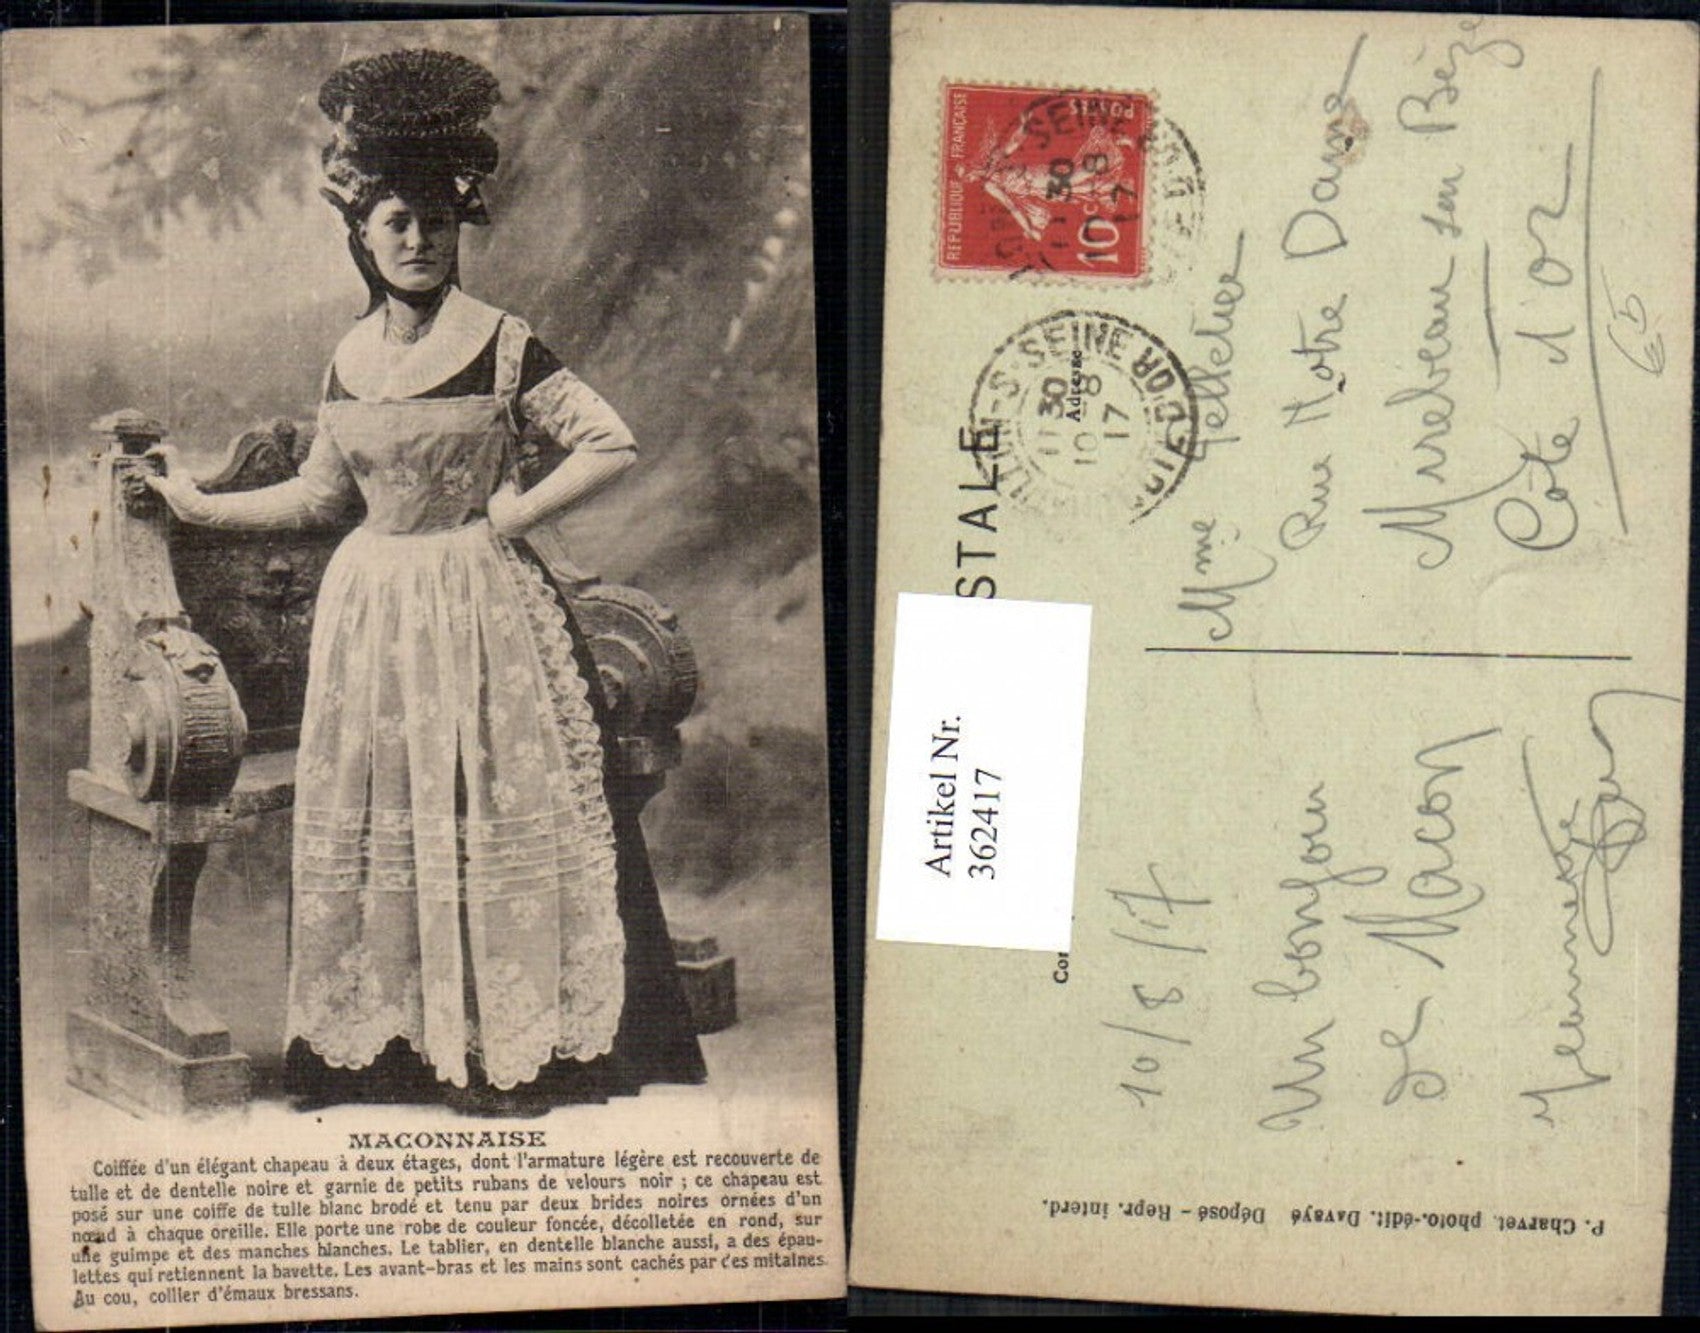 MACONNAISE
Coiffée d'un élégant chapeau à deux étages, dont l'armature légère est recouverte de
tulle et de dentelle noire et garnie de petits rubans de velours noir ; ce chapeau est
posé sur une coiffe de tulle blanc brodé et tenu par deux brides noires ornées d'un
nœud à chaque oreille. Elle porte une robe de couleur foncée, décolletée en rond, sur
une guimpe et des manches blanches. Le tablier, en dentelle blanche aussi, a des épau-
lettes qui retiennent la bavette. Les avant-bras et les mains sont cachés par des mitaines
Au cou, collier d'émaux bressans.
REPUBLIQUE FRANÇAISE
POSTES
10c
SEINE
11 30
10 - 8
17
SEINE
11 30
10 - 8
17
STALE
Adresse
Cor
Artikel Nr.
362417
10/8/17
Un bonjour
de Macon
Mme Pelletier
Rue Notre Dame
Mirebeau sur Bèze
Côte d'or
65
P. Charvet, photo.-édit. Davayé Déposé - Repr. interd.